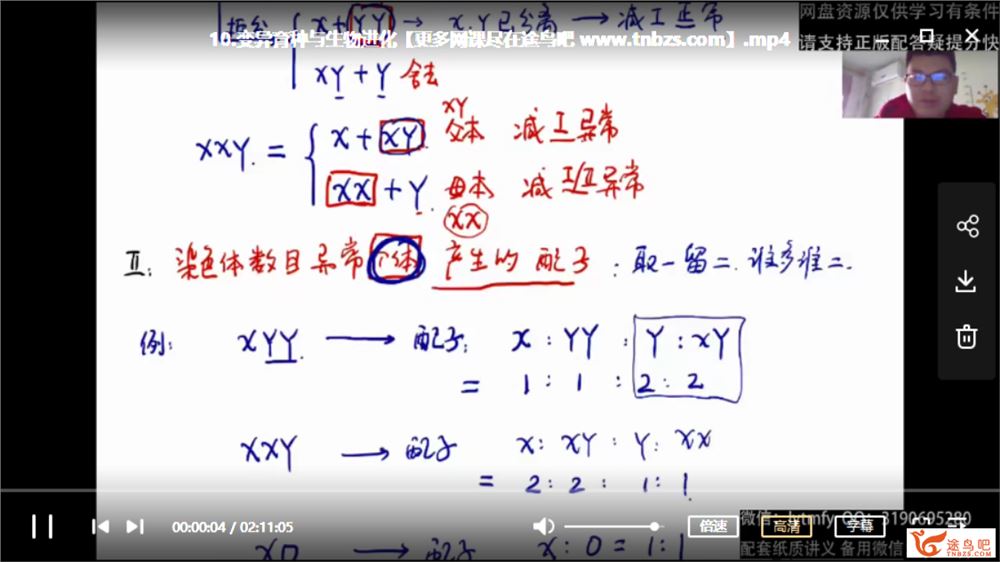 x + YY → x.Y已分离 → 减I正常
网盘资源仅供学习有条件
10.变异育种与生物进化【更多网课尽在途鸟吧 www.tnbzs.com】.mp4
请支持正版配答疑提分快
xY + Y 舍去
xxY. = x + xY. 父本 xY 减I异常
xx + Y. 母本 xx 减I/II异常
II: 染色体数目异常个体 产生的 配子 : 取一留二. 谁多谁二.
例: xYY. → 配子: x : YY : Y : xY
= 1 : 1 : 2 : 2
xxY → 配子 x : xY : Y : xx
= 2 : 2 : 1 : 1
00:00:04 / 02:11:05
倍速
高清
字幕
3190695280
x0 → 配子 x : 0 = 1 : 1
配套纸质讲义 备用微信
途鸟吧
TNBZS.COM